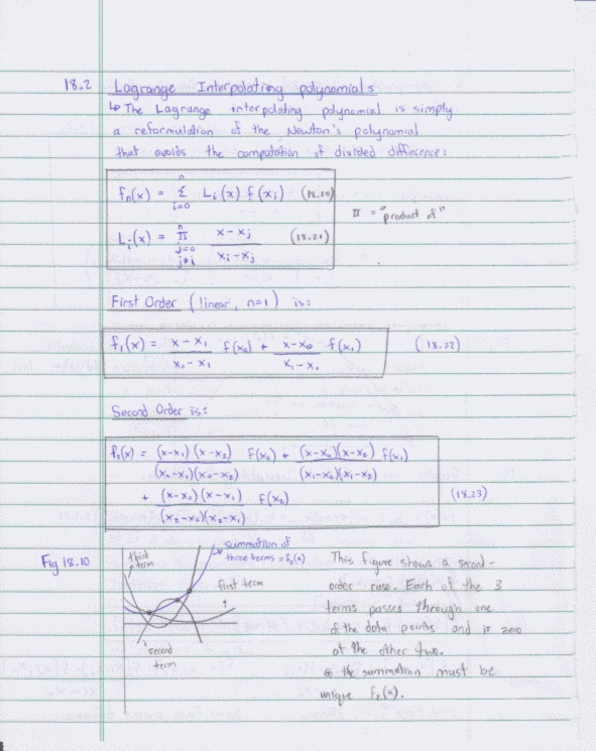 18.2 Lagrange Interpolating polynomials
↳ The Lagrange interpolating polynomial is simply
a reformulation of the Newton's polynomial
that avoids the computation of divided difference:
fₙ(x) = Σ Lᵢ(x) f(xᵢ) (18.20)
n
i=0
Π = "product of"
Lᵢ(x) = Π (x - xⱼ)/(xᵢ - xⱼ) (18.21)
n
j=0
j≠i
First Order (linear, n=1) is:
f₁(x) = (x - x₁)/(x₀ - x₁) f(x₀) + (x - x₀)/(x₁ - x₀) f(x₁) (18.22)
Second Order is:
f₂(x) = (x-x₁)(x-x₂)/(x₀-x₁)(x₀-x₂) f(x₀) + (x-x₀)(x-x₂)/(x₁-x₀)(x₁-x₂) f(x₁)
+ (x-x₀)(x-x₁)/(x₂-x₀)(x₂-x₁) f(x₂) (18.23)
Fig 18.10
third
term
summation of
three terms = f₂(x)
first term
second
term
This figure shows a second-
order case. Each of the 3
terms passes through one
of the data points and is zero
at the other two.
the summation must be
unique f₂(x).